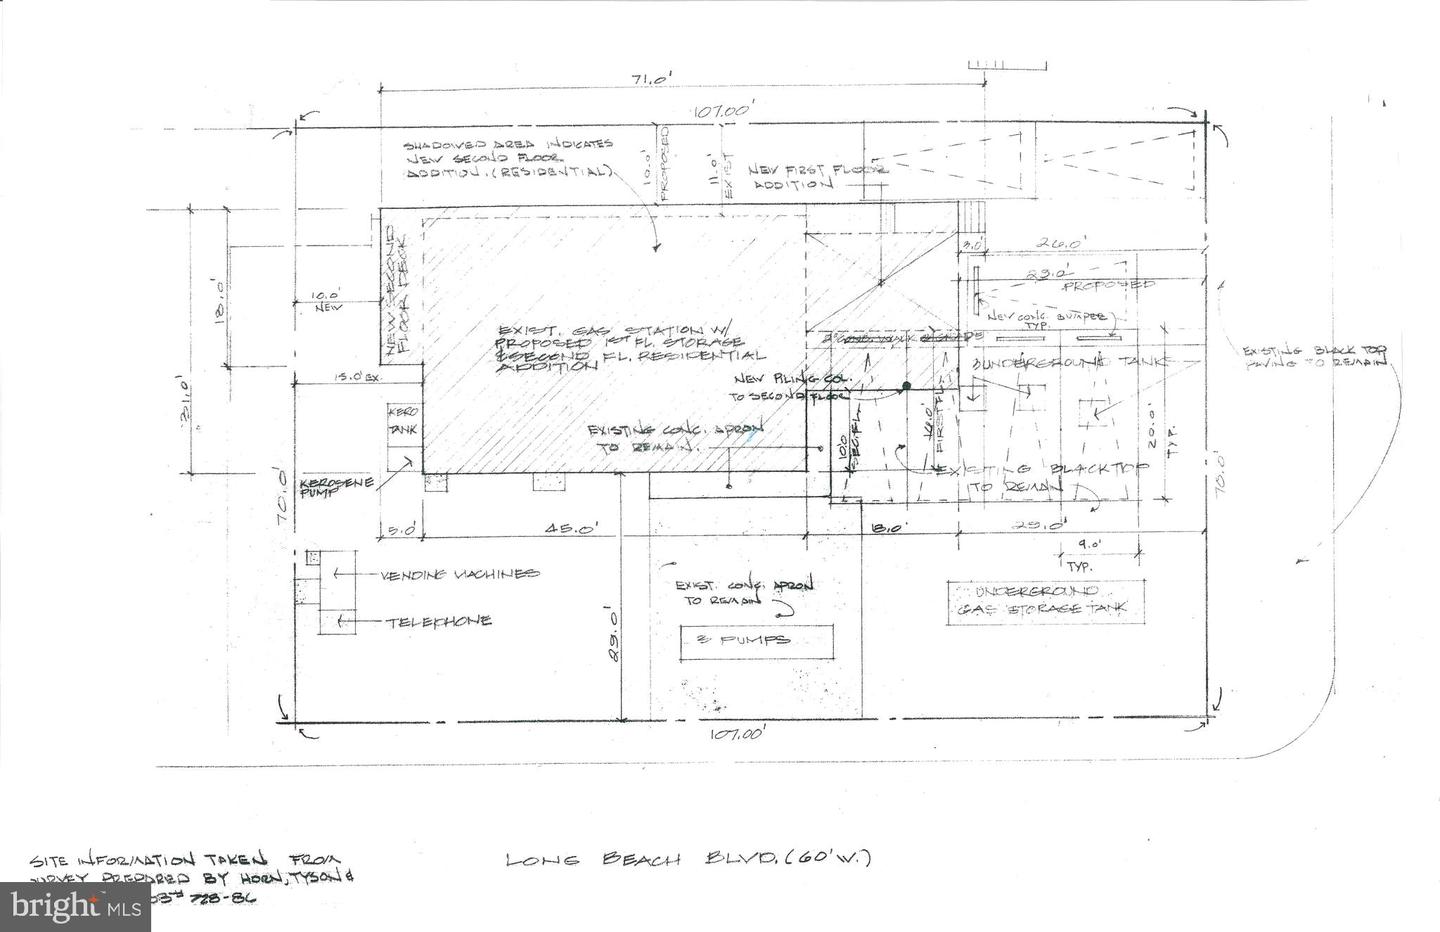 71.0'
107.00'
SHADOWED AREA INDICATES
NEW SECOND FLOOR
ADDITION. (RESIDENTIAL)
10.0'
PROPOSED
11.0'
EXIST
NEW FIRST FLOOR
ADDITION
NEW SECOND
FLOOR DECK
3.0'
26.0'
29.0'
PROPOSED
18.0'
10.0'
NEW
NEW CONC. BUMPER
TYP.
EXIST. GAS STATION W/
PROPOSED 1ST FL. STORAGE
& SECOND FL. RESIDENTIAL
ADDITION
UNDERGROUND TANK
EXISTING BLACK TOP
PAVING TO REMAIN
15.0' EX.
NEW PILING COL.
TO SECOND FLOOR
31.0'
KERO
TANK
EXISTING CONC. APRON
TO REMAIN.
10.0'
SEC. FL.
16.0'
FIRST FL.
20.0'
TYP.
EXISTING BLACKTOP
TO REMAIN
KEROSENE
PUMP
70.0'
70.0'
5.0'
45.0'
18.0'
29.0'
9.0'
TYP.
VENDING MACHINES
TELEPHONE
29.0'
EXIST. CONC. APRON
TO REMAIN
UNDERGROUND
GAS STORAGE TANK
PUMPS
107.00'
LONG BEACH BLVD. (60' W.)
SITE INFORMATION TAKEN FROM
SURVEY PREPARED BY HORN, TYSON &
728-86
bright MLS